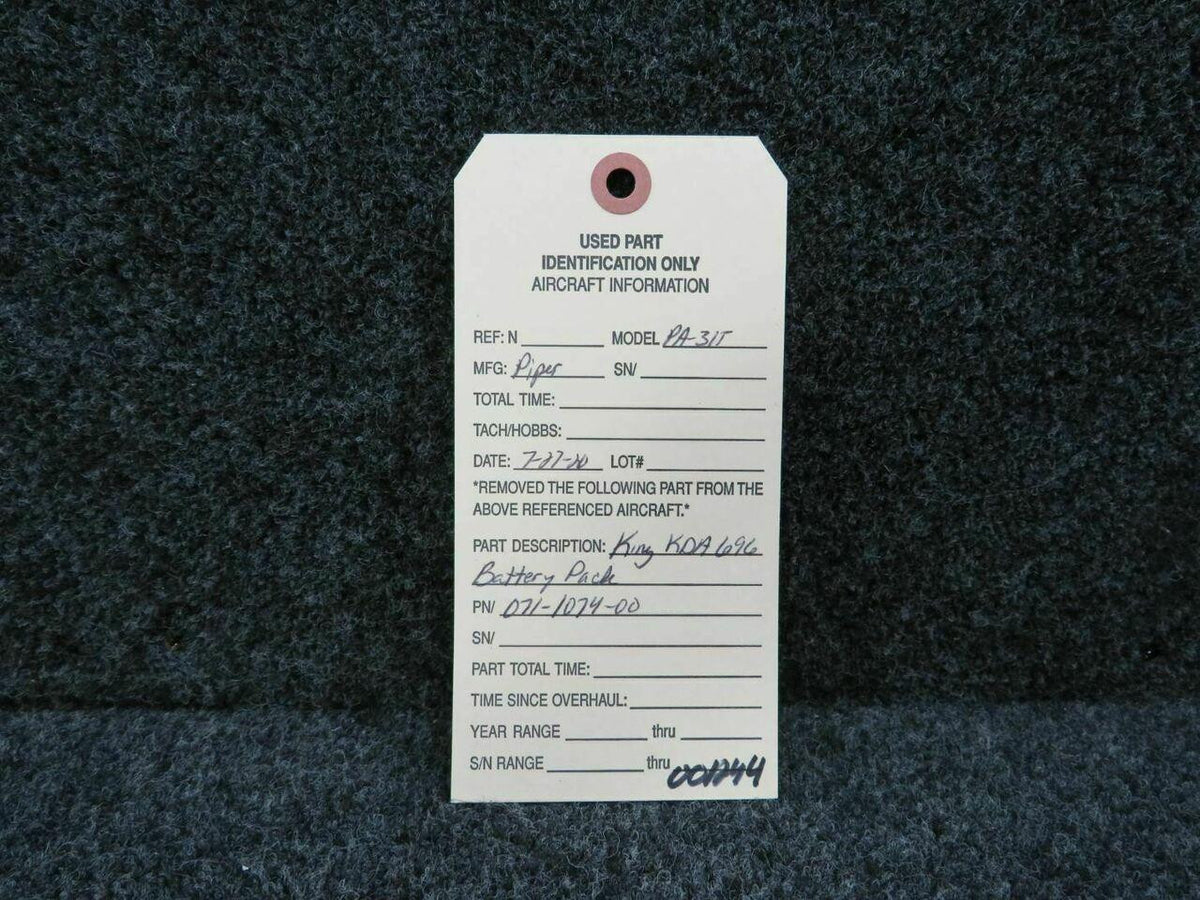 USED PART
IDENTIFICATION ONLY
AIRCRAFT INFORMATION
REF: N MODEL PA-31T
MFG: Piper SN/
TOTAL TIME:
TACH/HOBBS:
DATE: 7-27-20 LOT#
*REMOVED THE FOLLOWING PART FROM THE
ABOVE REFERENCED AIRCRAFT.*
PART DESCRIPTION: King KDA 696
Battery Pack
PN/ 071-1074-00
SN/
PART TOTAL TIME:
TIME SINCE OVERHAUL:
YEAR RANGE thru
S/N RANGE thru